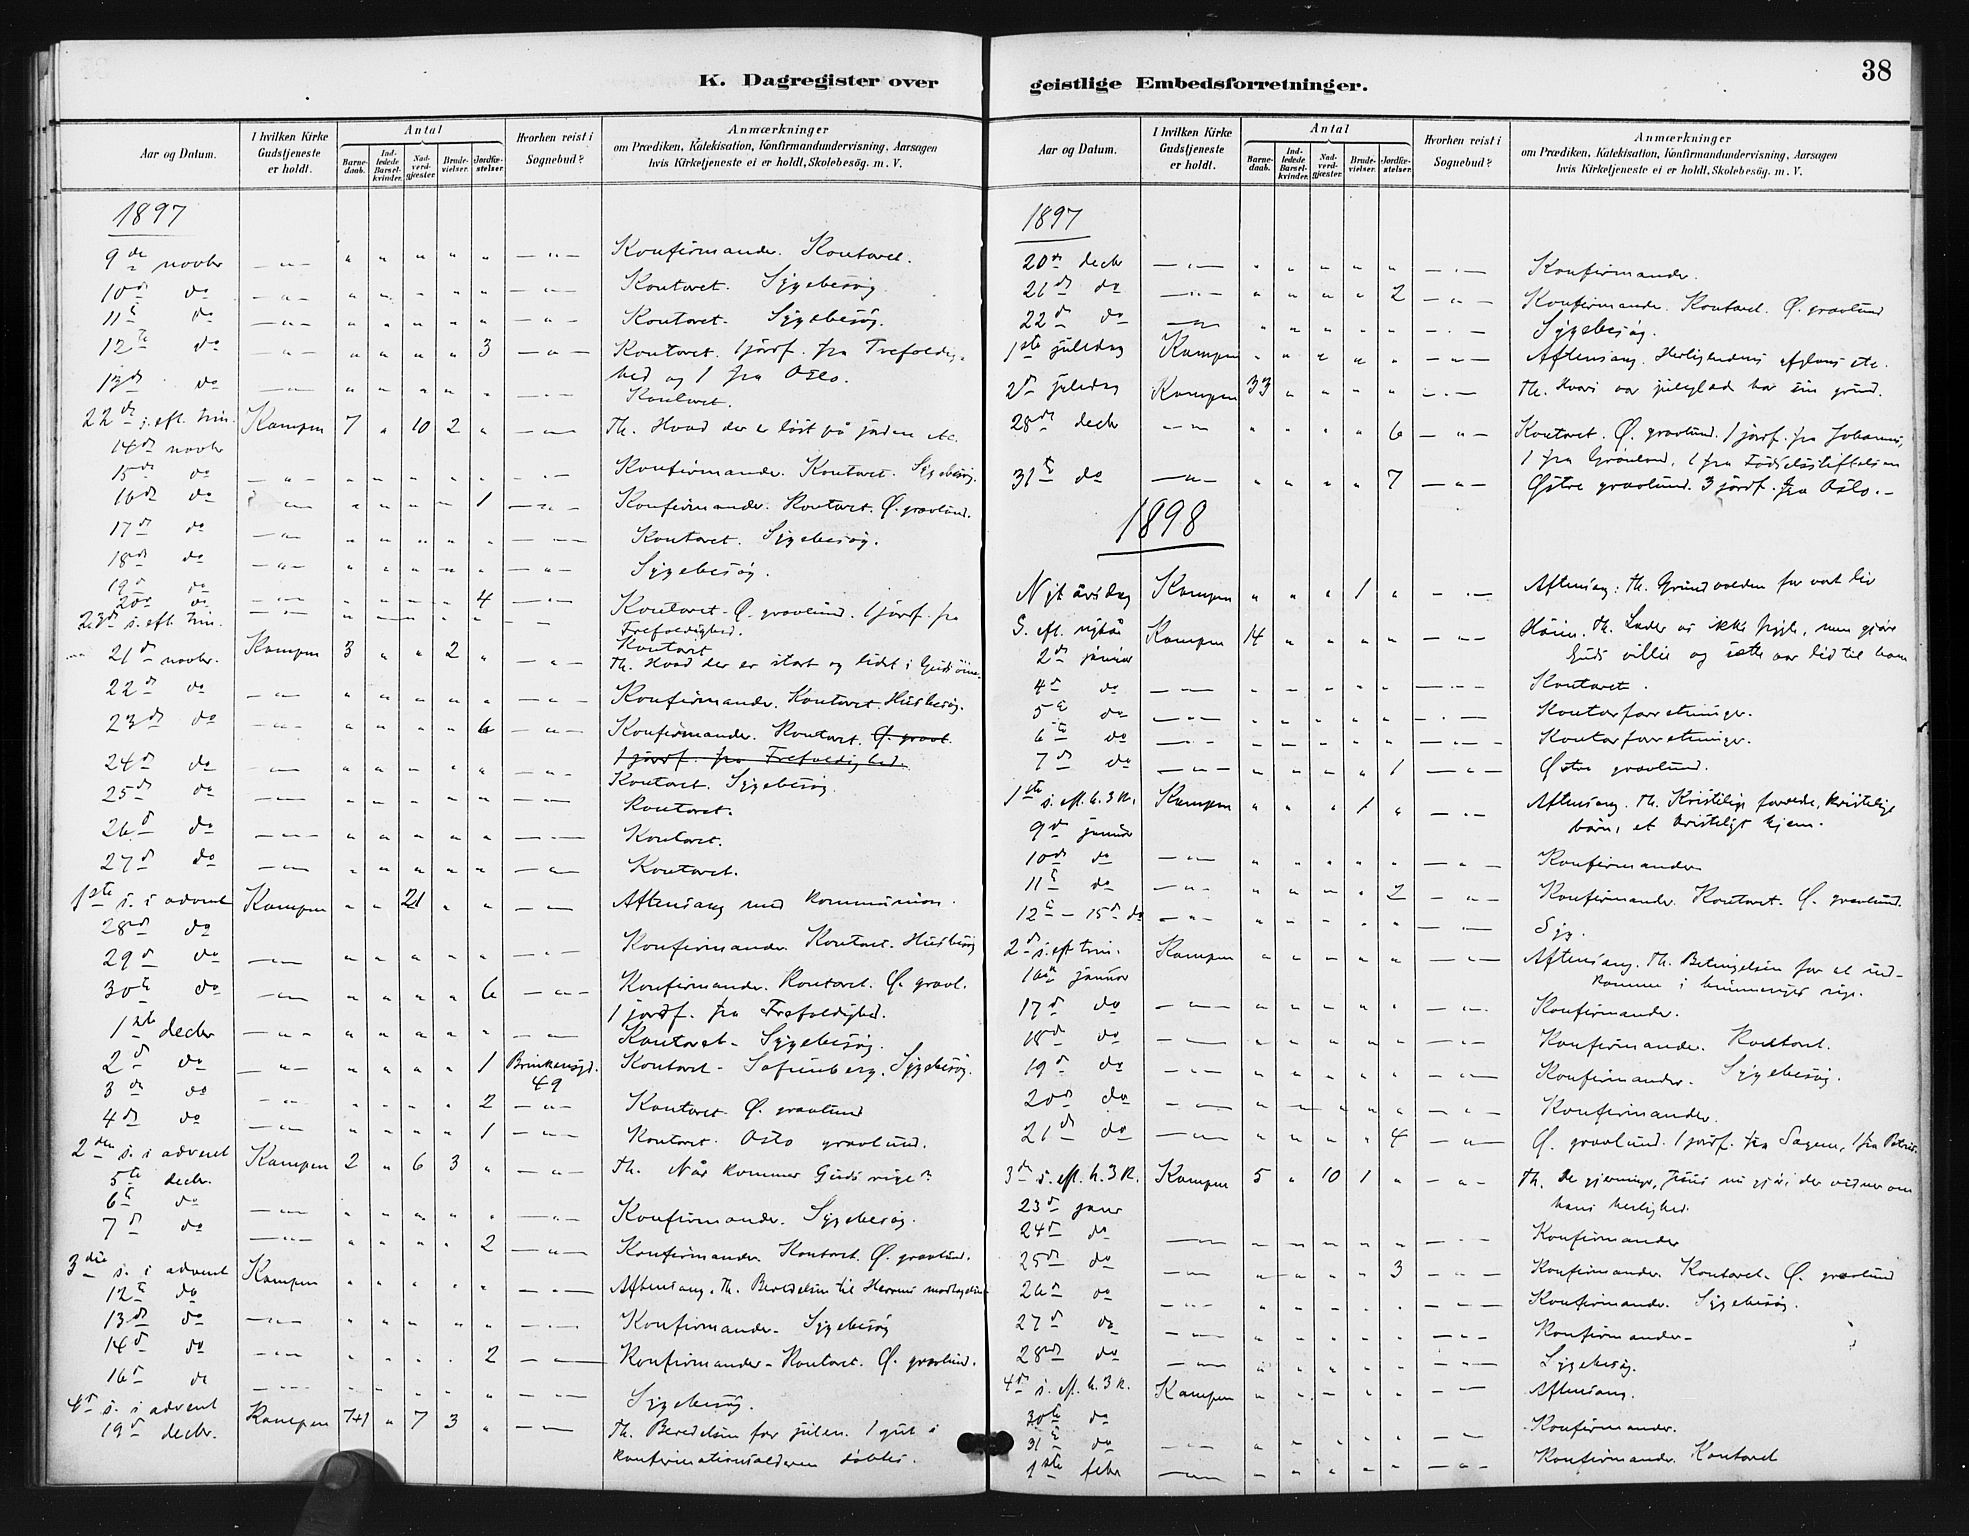 K. Dagregister over
Aar og Datum.
I hvilken Kirke Gudstjeneste er holdt.
Antal
Barne-daab.
Ind-ledede Barsel-kvinder.
Nad-verd-gjæster.
Brude-vielser.
Jordfæ-stelser.
Hvorhen reist i Sognebud?
Anmærkninger
om Prædiken, Katekisation, Konfirmandundervisning, Aarsagen
hvis Kirketjeneste ei er holdt, Skolebesög. m. V.
1897
9de novbr Konfirmander. Kontoret.
10de do Kontoret. Sygebesøg.
11te do Kontoret. Sygebesøg.
12te do 3 Kontoret. 1 jordf. fra Trefoldig-
hed og 1 fra Oslo.
13de do Kontoret.
22de s. eft. trin. Kampen 7 " 10 2 " Th. Hvad der er løst på jorden etc.
14de novbr
15de do Konfirmander. Kontoret. Sygebesøg.
16de do 1 Konfirmander. Kontoret. Ø. gravlund.
17de do Kontoret. Sygebesøg.
18de do Sygebesøg.
19de do 4 Kontoret. Ø. gravlund. 1 jordf. fra
Trefoldighed.
20de do Kontoret
23de s. eft. trin. 21de novbr. Kampen 3 " " 2 " Th. Hvad der er stort og lidt i Guds öine.
22de do Konfirmander. Kontoret. Husbesøg.
23de do 6 Konfirmander. Kontoret. Ø. gravl.
1 jordf. fra Trefoldighed.
24de do Kontoret. Sygebesøg.
25de do Kontoret.
26de do Kontoret.
27de do Kontoret.
1ste s. i advent Kampen " " 21 " " Aftensang med kommunion.
28de do
29de do Konfirmander. Kontoret. Husbesøg
30te do 6 Konfirmander. Kontoret. Ø. gravl.
1 jordf. fra Trefoldighed.
1ste decbr Kontoret. Sygebesøg.
2de do 1 Brinkensgd. 49 Kontoret. Sofienberg. Sygebesøg.
3de do 2 Kontoret. Ø. gravlund
4de do 1 Kontoret. Oslo gravlund.
2den s. i advent Kampen 2 " 6 3 " Th. Når kommer Guds rige?
5te decbr.
6te do Konfirmander. Sygebesøg.
7de do 2 Konfirmander. Kontoret. Ø. gravlund.
3die s. i advent Kampen Aftensang. Th. Beredelsen til Herrens modtagelse
12te do
13de do Konfirmander. Sygebesøg
14de do 2 Konfirmander. Kontoret. Ø. gravlund.
16de do Sygebesøg.
4de s. i advent Kampen 7+1 " 7 3 " Th. Beredelsen for julen. 1 gut i
19de decbr. konfirmationsalderen döbtes.
geistlige Embedsforretninger.
38
Aar og Datum.
I hvilken Kirke Gudstjeneste er holdt.
Antal
Barne-daab.
Ind-ledede Barsel-kvinder.
Nad-verd-gjæster.
Brude-vielser.
Jordfæ-stelser.
Hvorhen reist i Sognebud?
Anmærkninger
om Prædiken, Katekisation, Konfirmandundervisning, Aarsagen
hvis Kirketjeneste ei er holdt, Skolebesög. m. V.
1897
20de decbr Konfirmander.
21de do 2 Konfirmander. Kontoret. Ø. gravlund
22de do Sygebesøg.
1ste juledag Kampen Aftensang. Herlighedens afglans etc.
2de juledag Kampen 33 Th. Hvori vor juleglæde har sin grund.
28de decbr 6 Kontoret. Ø. gravlund. 1 jordf. fra Johannes,
1 fra Grønland, 1 fra Födselsstiftelsen
31te do 7 Østre gravlund. 3 jordf. fra Oslo.
1898
Nytårsdag Kampen 1 Aftensang: Th. Grundvolden for vort liv
S. eft. nytår Kampen 14 Höim. Th. Lader os ikke frygte, men gjöre
2de januar Guds villie og sætte vor lid til ham
4de do Kontoret.
5te do Kontorforretninger.
6te do Kontorforretninger.
7de do 1 Østre gravlund.
1ste s. eft. h. 3 K. Kampen 1 Aftensang. Th. Kristelige forældre, kristelige
9de januar börn, et kristeligt hjem.
10de do Konfirmander
11te do 2 Konfirmander. Kontoret. Ø. gravlund.
12te – 15de do Syg.
2den s. eft. trin. Kampen Aftensang. Th. Betingelsen for at ind-
16de januar komme i himmeriges rige.
17de do Konfirmander.
18de do Konfirmander. Kontoret.
19de do Konfirmander. Sygebesøg.
20de do Konfirmander.
21de do 4 Ø. gravlund. 1 jordf. fra Sagene, 1 fra Petrus.
3de s. eft. h. 3 K. Kampen 5 " 10 1 " Th. De gjerninger, Jesus nu gjör, der vidner om
23de januar hans herlighed.
24de do Konfirmander
25de do 3 Konfirmander. Kontoret. Ø. gravlund
26de do Konfirmander. Sygebesøg.
27de do Konfirmander
28de do Sygebesøg.
4de s. eft. h. 3 K. Kampen Aftensang.
30te do
31te do Konfirmander.
1ste febr Konfirmander. Kontoret